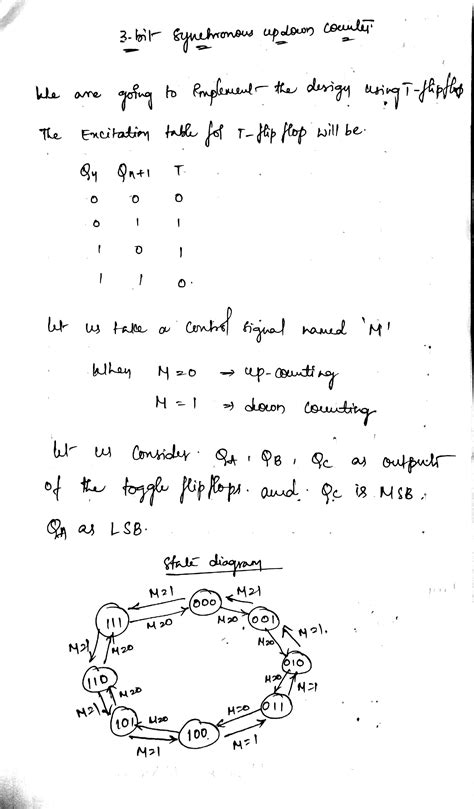 3-bit Synchronous up down counter
We are going to implement the design using T-flipflop
The Excitation table for T-flip flop will be.
Qn Qn+1 T
0 0 0
0 1 1
1 0 1
1 1 0.
let us take a control signal named 'M'
When M=0 → up-counting
M=1 ⇒ down counting
let us consider. QA, QB, QC as outputs
of the toggle flip flops. and. QC is MSB,
QA as LSB.
State diagram
M=1 000 M=1
111 M=0 M=0 001 M=1.
M=1 M=0 M=0 010
110 M=0 M=0 M=1
M=1 101 M=0 M=0 011
M=1 100 M=1